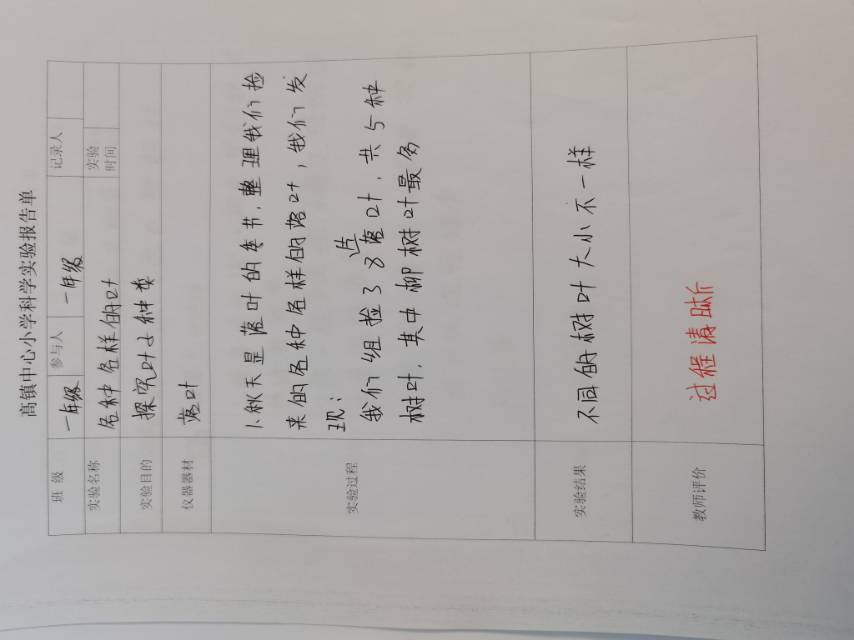 高镇中心小学科学实验报告单
班 级 一年级 参与人 一年级 记录人
实验名称 各种各样的叶 实验时间
实验目的 探究叶子种类
仪器器材 落叶
实验过程
1、秋天是落叶的季节,整理我们捡
来的各种各样的落叶,我们发
现:
我们组捡了8片落叶,共5种
树叶,其中柳树叶最多
实验结果 不同的树叶大小不一样
教师评价 过程清晰